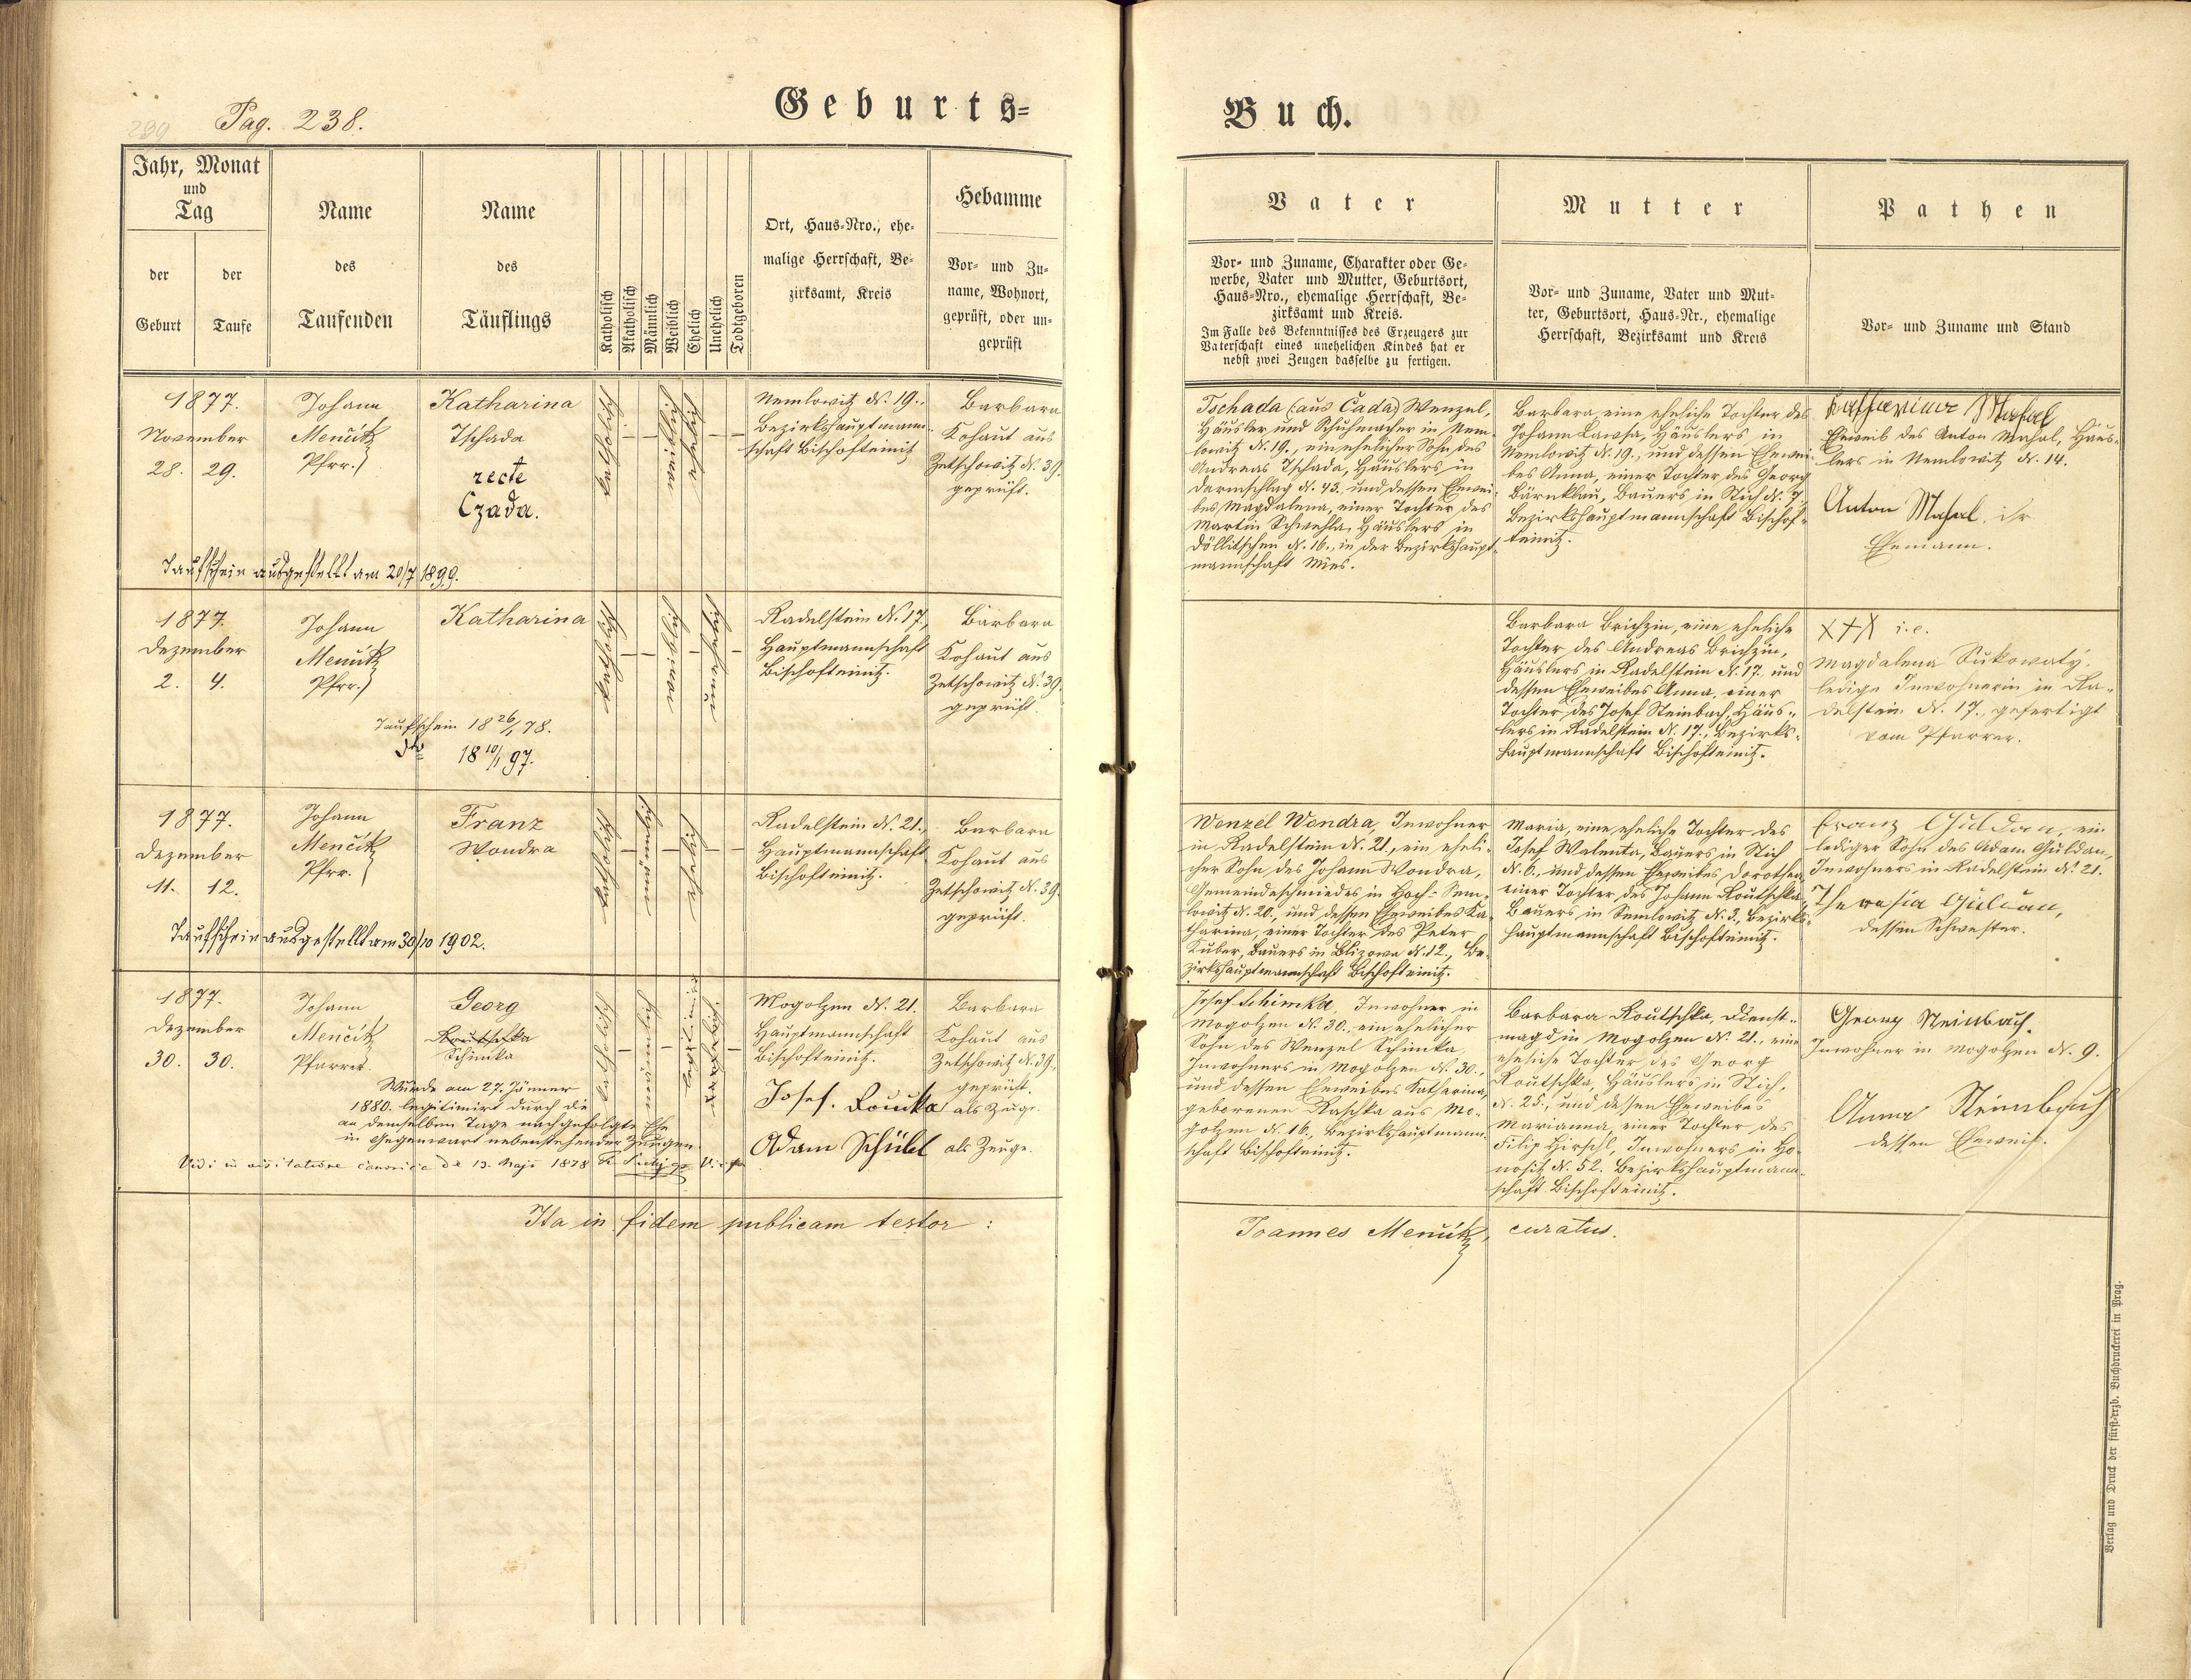 Pag. 238.
Geburts=
Jahr, Monat
und
Tag
der
Geburt
der
Taufe
Name
des
Taufenden
Name
des
Täuflings
Katholisch
Akatholisch
Männlich
Weiblich
Ehelich
Unehelich
Todtgeboren
Ort, Haus=Nro., ehe=
malige Herrschaft, Be=
zirksamt, Kreis
Hebamme
Vor= und Zu=
name, Wohnort,
geprüft, oder un=
geprüft
1877.
November
28. 29.
Johann
Menčik
Pfrr.
Katharina
Tschada
recte
Czada.
katholisch
weiblich
ehelich
Nemlowitz N. 19.,
Bezirkshauptmann-
schaft Bischofteinitz
Barbara
Kohaut aus
Zetschowitz N. 39.
geprüft.
Taufschein ausgestellt am 20/7 1899.
1877.
Dezember
2. 4.
Johann
Menčik
Pfrr.
Katharina
katholisch
weiblich
unehelich
Radelstein N. 17.,
Hauptmannschaft
Bischofteinitz.
Barbara
Kohaut aus
Zetschowitz N. 39.
geprüft.
Taufschein 18 26/1 78.
dto 18 10/1 97.
1877.
Dezember
11. 12.
Johann
Menčik
Pfrr.
Franz
Wondra
katholisch
männlich
ehelich
Radelstein N. 21.,
Hauptmannschaft
Bischofteinitz.
Barbara
Kohaut aus
Zetschowitz N. 39.
geprüft.
Taufschein ausgestellt am 30/10 1902.
1877.
Dezember
30. 30.
Johann
Menčik
Pfarrer.
Georg
Routschka
Schimka
katholisch
männlich
legitimirt
unehelich
Mogolzen N. 21.
Hauptmannschaft
Bischofteinitz.
Barbara
Kohaut aus
Zetschowitz N. 39.,
geprüft.
Wurde am 27. Jänner
1880. legitimirt durch die
an demselben Tage nachgefolgte Ehe
in Gegenwart nebenstehender Zeugen.
Josef. als Zeuge.
Adam als Zeuge.
Vidi in visitatione canonica de 13. Maji 1878
Ita in fidem publicam testor :
Buch.
Vater
Vor= und Zuname, Charakter oder Ge=
werbe, Vater und Mutter, Geburtsort,
Haus=Nro., ehemalige Herrschaft, Be=
zirksamt und Kreis.
Im Falle des Bekenntnisses des Erzeugers zur
Vaterschaft eines unehelichen Kindes hat er
nebst zwei Zeugen dasselbe zu fertigen.
Mutter
Vor= und Zuname, Vater und Mut=
ter, Geburtsort, Haus=Nr., ehemalige
Herrschaft, Bezirksamt und Kreis
Pathen
Vor= und Zuname und Stand
Tschada (aus Čada) Wenzel,
Häusler und Schuhmacher in Nem-
lowitz N. 19., ein ehelicher Sohn des
Andreas Tschada, Häuslers in
Darmschlag N. 43. und dessen Ehewei-
bes Magdalena, einer Tochter des
Martin Schwehla, Häuslers in
Döllitschen N. 16., in der Bezirkshaupt-
mannschaft Mies.
Barbara, eine eheliche Tochter des
Johann Lawsa, Häuslers in
Nemlowitz N. 19., und dessen Ehewei-
bes Anna, einer Tochter des Georg
Bärnklau, Bauers in Stich N. 7.,
Bezirkshauptmannschaft Bischof-
teinitz.
Katharina Mahal
Eheweib des Anton Mahal, Häus-
lers in Nemlowitz N. 14.
Anton Mahal, ihr
Ehemann.
Barbara Brichzin, eine eheliche
Tochter des Andreas Brichzin,
Häuslers in Radelstein N. 17. und
dessen Eheweibes Anna, einer
Tochter des Josef Steinbach, Häus-
lers in Radelstein N. 17., Bezirks-
hauptmannschaft Bischofteinitz.
XXX i. e.
Magdalena Sukowaty,
ledige Inwohnerin in Ra-
delstein N. 17., gefertigt
vom Pfarrer.
Wenzel Wondra, Inwohner
in Radelstein N. 21., ein eheli-
cher Sohn des Johann Wondra,
Gemeindeschmiedes in Hoch-Sem-
lowitz N. 20., und dessen Eheweibes Ka-
tharina, einer Tochter des Peter
Kuber, Bauers in Blizowa N. 12., Be-
zirkshauptmannschaft Bischofteinitz.
Maria, eine eheliche Tochter des
Josef Walenta, Bauers in Stich
N. 6., und dessen Eheweibes Dorothea
einer Tochter des Johann Routschka,
Bauers in Semlowitz N. 3., Bezirks-
hauptmannschaft Bischofteinitz.
Franz Guldan, ein
lediger Sohn des Adam Guldan,
Inwohners in Radelstein N. 21.
Theresia Guldan,
dessen Schwester.
Josef Schimka, Inwohner in
Mogolzen N. 30., ein ehelicher
Sohn des Wenzel Schimka
Inwohners in Mogolzen N. 30.,
und dessen Eheweibes Katharina,
geborenen Raschka aus Mo-
golzen N. 16., Bezirkshauptmann-
schaft Bischofteinitz.
Barbara Routschka, Dienst-
magd in Mogolzen N. 21., eine
eheliche Tochter des Georg
Routschka, Häuslers in Stich,
N. 25., und dessen Eheweibes
Marianna, einer Tochter des
Filip Hirschl, Inwohners in Ho-
nositz N. 52. Bezirkshauptmann-
schaft Bischofteinitz.
Georg Steinbach.
Inwohner in Mogolzen N. 9.
Anna Steinbach
dessen Eheweib.
Joannes Menčik, curatus.
Verlag und Druck der fürst=erzb. Buchdruckerei in Prag.